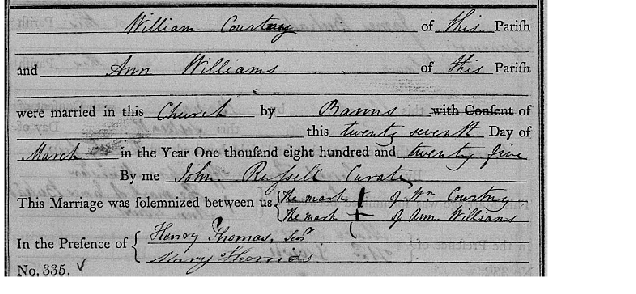 William Courtney of this Parish
and Ann Williams of this Parish
were married in this Church by Banns with Consent of
this twenty seventh Day of
March in the Year One thousand eight hundred and twenty five
By me John Russell Curate
This Marriage was solemnized between us { The mark + of Wm Courtney
The mark + of Ann Williams
In the Presence of { Henry Thomas,
Mary Thomas
No. 335. ✓